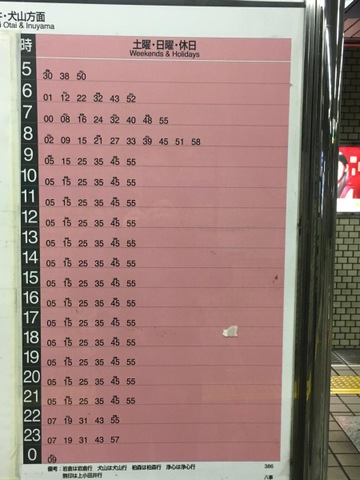 本・犬山方面
i Otai & Inuyama
時 土曜・日曜・休日
Weekends & Holidays
5 30 38 50
6 01 12 22 32 43 52
7 00 08 16 24 32 40 48 55
8 02 09 15 21 27 33 39 45 51 58
9 05 15 25 35 45 55
10 05 15 25 35 45 55
11 05 15 25 35 45 55
12 05 15 25 35 45 55
13 05 15 25 35 45 55
14 05 15 25 35 45 55
15 05 15 25 35 45 55
16 05 15 25 35 45 55
17 05 15 25 35 45 55
18 05 15 25 35 45 55
19 05 15 25 35 45 55
20 05 15 25 35 45 55
21 05 15 25 35 45 55
22 07 19 31 43 55
23 07 19 31 43 57
0 09
備考：岩倉は岩倉行 犬山は犬山行 柏森は柏森行 浄心は浄心行
無印は上小田井行
386
八事